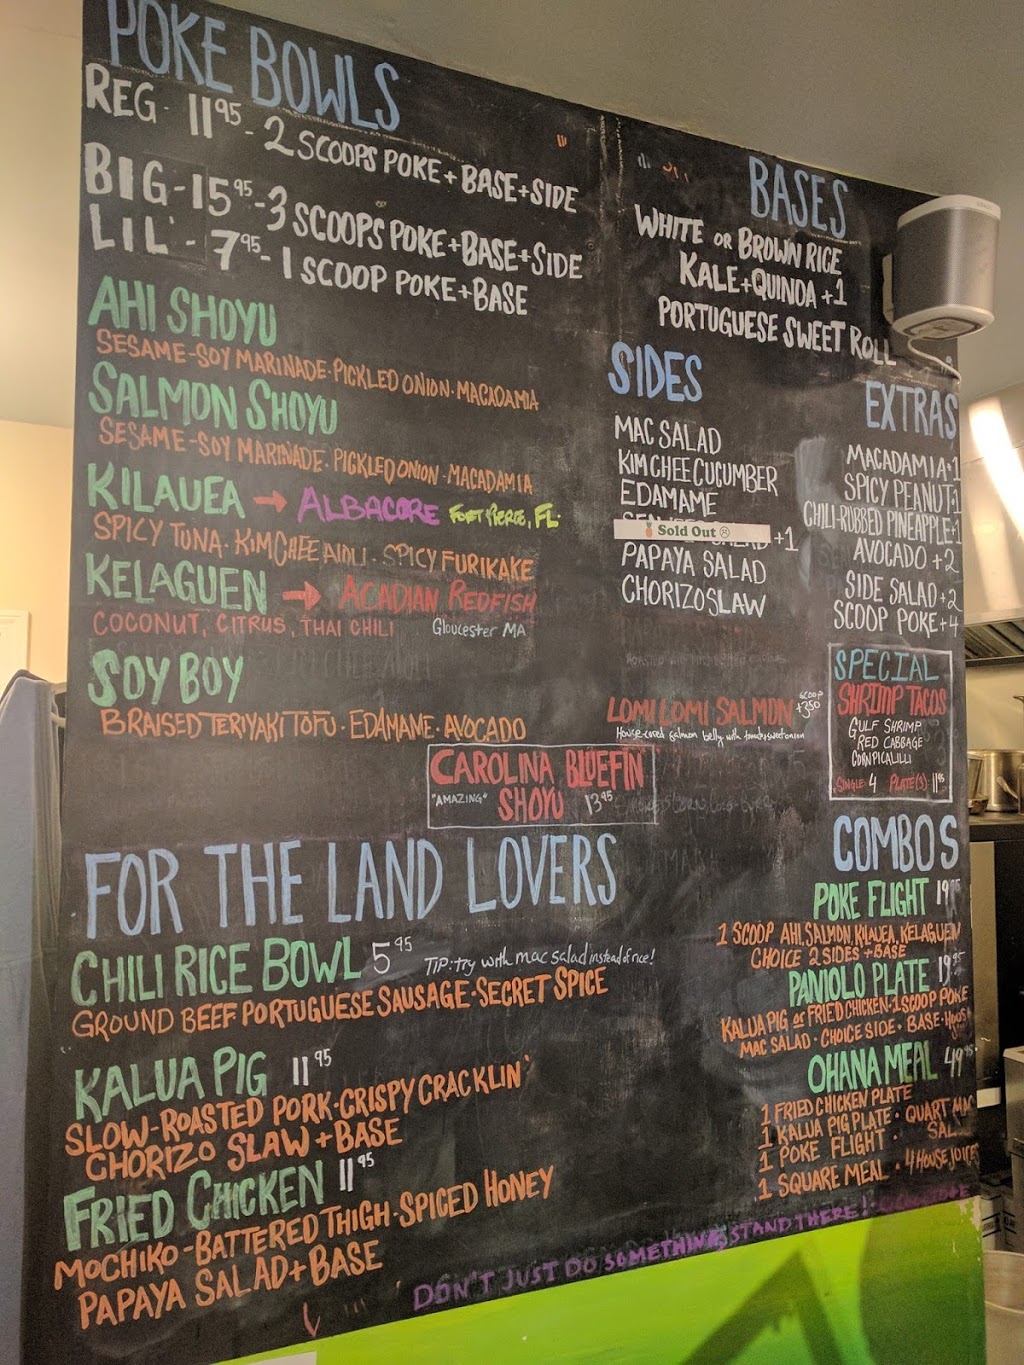 POKE BOWLS
REG - 11.95 - 2 SCOOPS POKE + BASE + SIDE
BIG - 15.95 - 3 SCOOPS POKE + BASE + SIDE
LIL' - 7.95 - 1 SCOOP POKE + BASE
AHI SHOYU
SESAME-SOY MARINADE · PICKLED ONION · MACADAMIA
SALMON SHOYU
SESAME-SOY MARINADE · PICKLED ONION · MACADAMIA
KILAUEA → ALBACORE FORT PIERCE, FL.
SPICY TUNA · KIM CHEE AIOLI · SPICY FURIKAKE
KELAGUEN → ACADIAN REDFISH
COCONUT, CITRUS, THAI CHILI Gloucester MA
SOY BOY
BRAISED TERIYAKI TOFU · EDAMAME · AVOCADO
CAROLINA BLUEFIN
"AMAZING" SHOYU 13.95
FOR THE LAND LOVERS
CHILI RICE BOWL 5.95 TIP: try with mac salad instead of rice!
GROUND BEEF PORTUGUESE SAUSAGE · SECRET SPICE
KALUA PIG 11.95
SLOW-ROASTED PORK · CRISPY CRACKLIN'
CHORIZO SLAW + BASE
FRIED CHICKEN 11.95
MOCHIKO-BATTERED THIGH · SPICED HONEY
PAPAYA SALAD + BASE
BASES
WHITE OR BROWN RICE
KALE + QUINOA + 1
PORTUGUESE SWEET ROLL
SIDES
MAC SALAD
KIM CHEE CUCUMBER
EDAMAME
Sold Out +1
PAPAYA SALAD
CHORIZO SLAW
LOMI LOMI SALMON SCOOP +3.50
House-cured salmon belly with tomato sweet onion
EXTRAS
MACADAMIA · 1
SPICY PEANUT · 1
CHILI-RUBBED PINEAPPLE · 1
AVOCADO + 2
SIDE SALAD + 2
SCOOP POKE + 4
SPECIAL
SHRIMP TACOS
GULF SHRIMP
RED CABBAGE
CORN PICALILLI
SINGLE: 4 PLATE(3): 11.95
COMBOS
POKE FLIGHT 19.95
1 SCOOP AHI, SALMON, KILAUEA, KELAGUEN
CHOICE 2 SIDES + BASE
PANIOLO PLATE 19.95
KALUA PIG OR FRIED CHICKEN · 1 SCOOP POKE
MAC SALAD · CHOICE SIDE · BASE ·
OHANA MEAL 49.95
1 FRIED CHICKEN PLATE
1 KALUA PIG PLATE · QUART MAC
1 POKE FLIGHT SAL
1 SQUARE MEAL · 4 HOUSE JUICES
DON'T JUST DO SOMETHING, STAND THERE!